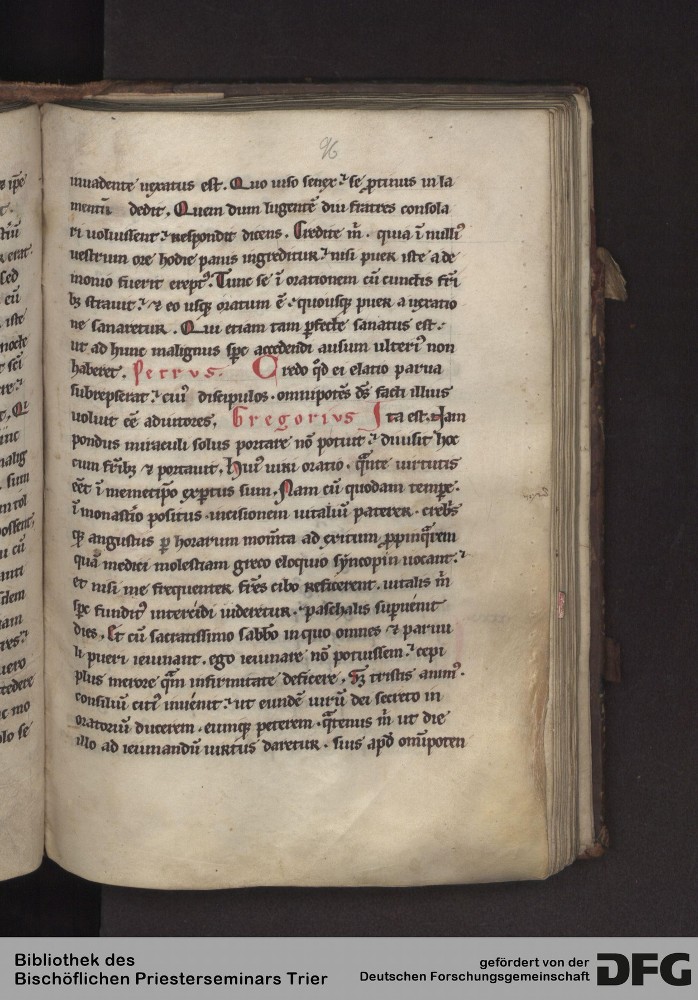 96
inuadente uexatus est. Quo uiso senex ⁊ se ꝓtinus in la
mentū dedit. Quem dum lugentē diu fratres consola
ri uoluissent ⁊ respondit dicens. Credite m̄. quia ī nulliꝰ
uestrum ore hodie panis ingreditur ⁊ nisi puer iste a de
monio fuerit ereptꝰ. Tunc se ī orationem cū cunctis fr̄i
bꝫ strauit ⁊ ⁊ eo usqꝫ oratum ē ⁊ quousqꝫ puer a uexatio
ne sanaretur. Qui etiam tam ꝑfecte sanatus est ⁊
ut ad hunc malignus sp̄c accedendi ausum ulteriꝰ non
haberet. Petrvs. Credo qd̄ ei elatio parua
subrepserat ⁊ eiꝰ discipulos. omnipotēs ds̄ facti illius
uoluit eē adiutores. Gregorivs Ita est. Nam
pondus miraculi solus portare nō potuit ⁊ diuisit hoc
cum fr̄ibꝫ ⁊ portauit. Huiꝰ uiri oratio. quāte uirtutis
eēt ī memetip̄o exꝑtus sum. Nam cū quodam tempr̄e.
ī monast̄io positus. incisionem uitaliū paterer. crebr̄s
qꝫ angustiis ꝑ horarum mom̄ta ad exitum ꝓpinqr̄em
quā medici molestiam greco eloquio syncopin uocant ⁊
et nisi me frequenter fr̄es cibo reficerent. uitalis m̄
sp̄c funditꝰ intercidi uideretur. paschalis supuenit
dies. Et cū sacratissimo sabb̄o in quo omnes ⁊ paruu
li pueri ieiunant. ego ieiunare nō potuissem ⁊ cepi
plus merore qm̄ infirmitate deficere. Sꝫ tristis animꝰ.
consiliū citiꝰ inuenit ⁊ ut eundē uirū dei secreto in
oratoriū ducerem. eumqꝫ peterem. qr̄tenus m̄ ut die
illo ad ieiunandū uirtus daretur. suis apd̄ omīpoten
Bibliothek des
Bischöflichen Priesterseminars Trier
gefördert von der
Deutschen Forschungsgemeinschaft
DFG